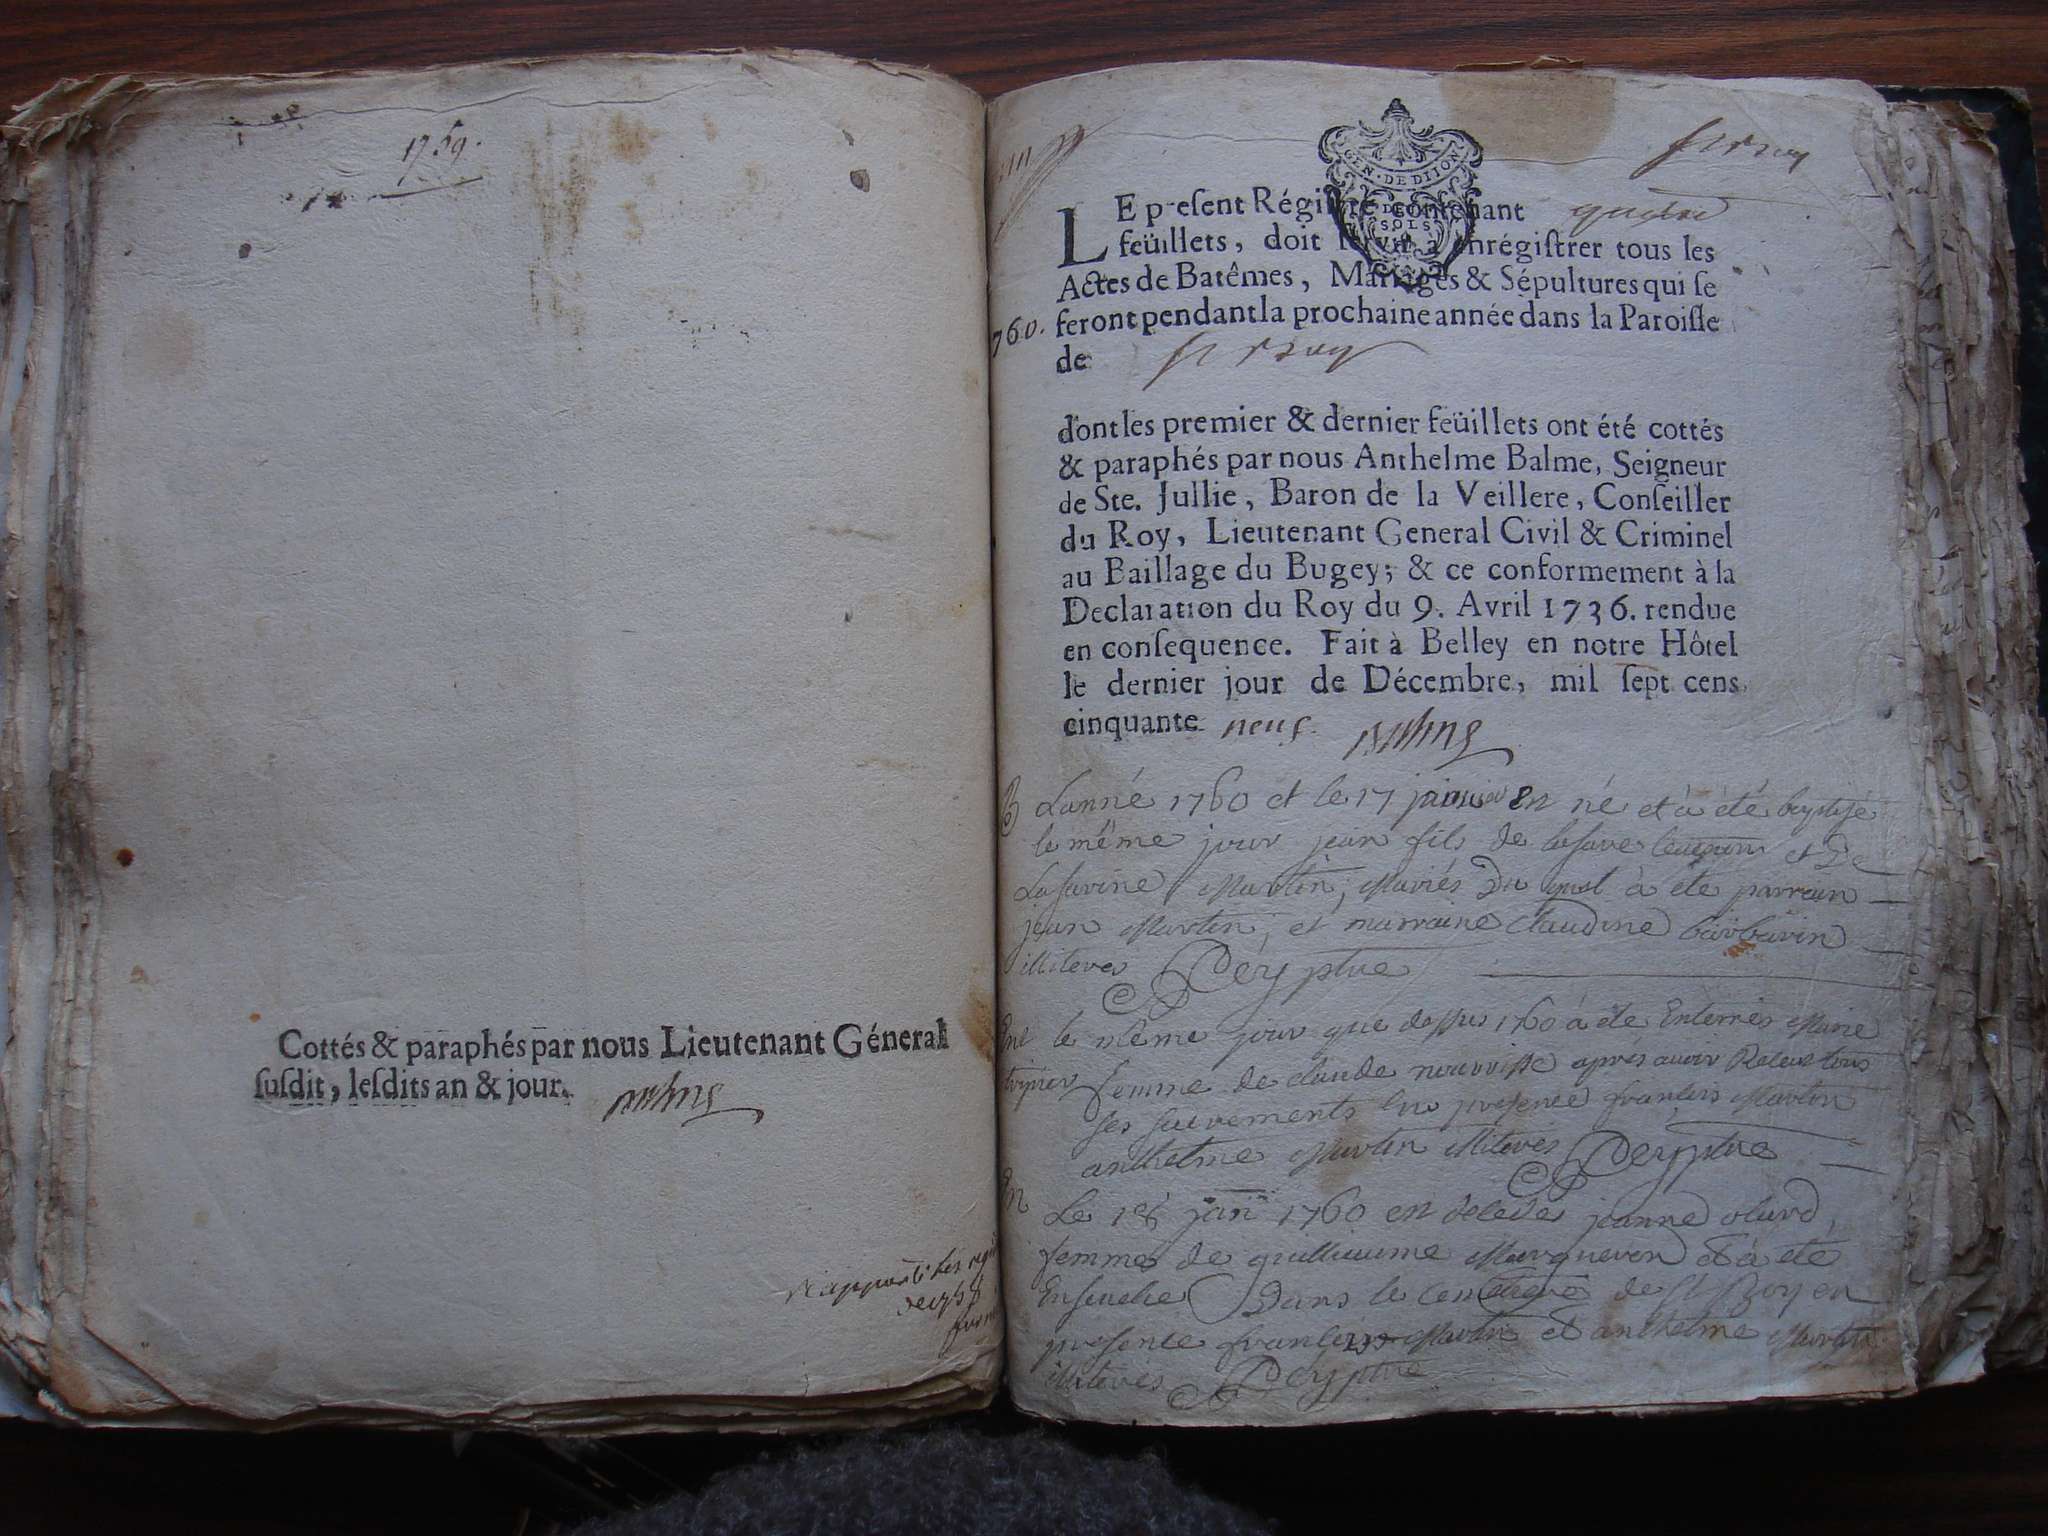 1759.
Cottés & paraphés par nous Lieutenant Géneral
susdit, lesdits an & jour.
GEN. DE DIJON
SOLS
LE present Régistre contenant quatre
feüillets, doit servir à enrégistrer tous les
Actes de Batêmes, Mariages & Sépultures qui se
feront pendant la prochaine année dans la Paroisse
760.
de
dont les premier & dernier feüillets ont été cottés
& paraphés par nous Anthelme Balme, Seigneur
de Ste. Jullie, Baron de la Veillere, Conseiller
du Roy, Lieutenant General Civil & Criminel
au Baillage du Bugey; & ce conformement à la
Declaration du Roy du 9. Avril 1736. rendue
en consequence. Fait à Belley en notre Hôtel
le dernier jour de Décembre, mil sept cens
cinquante neuf.
B Lanné 1760 et le 17 janvier en né et à été baptisé
le même jour jean fils de et De
Martin, Mariés Du quel à été parrain
jean Martin, et marraine Claudine barbarin
illiteres
Ent le même jour que dessus 1760 à été Enterrés Marie
femme de claude nourrisse apres avoir Receu tous
ses sacrements En presence francois Martin
anthelme Martin illiteres
En Le 18 janv 1760 est decedée jeanne
femme de guilliaume et à été
Ensevelie Dans le de St Roy en
presence francois Martin et anthelme Martin
illiteres